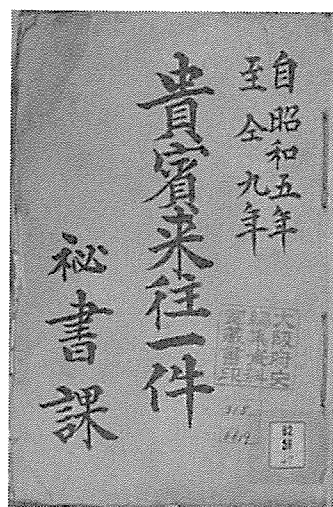 自昭和五年
至仝九年
貴賓来往一件
秘書課
大阪府史
編集資料